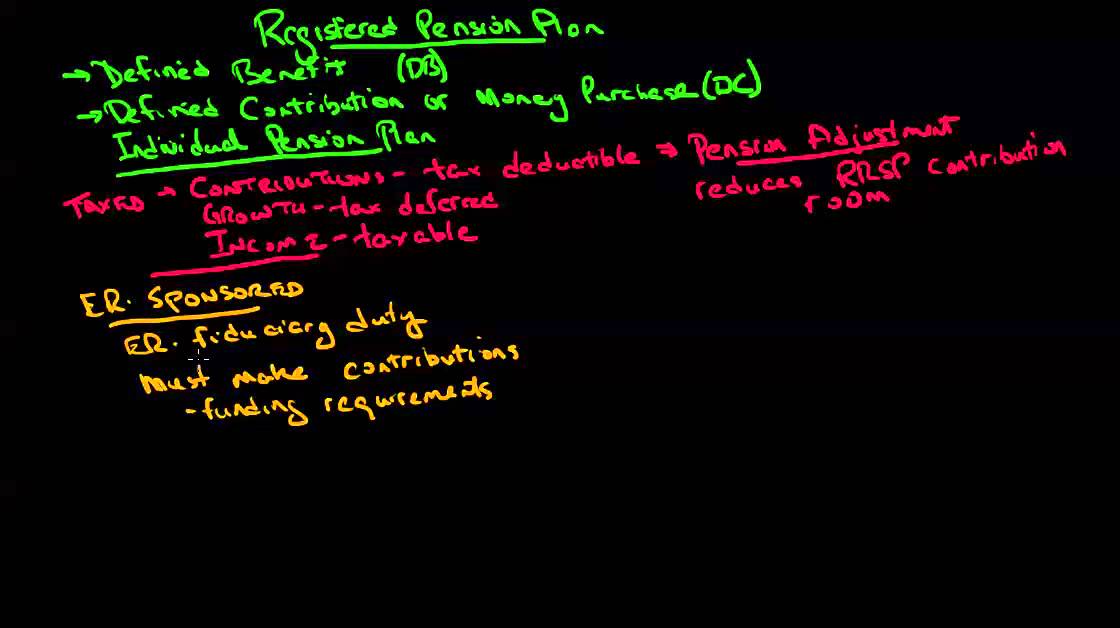 Registered Pension Plan
→ Defined Benefit (DB)
→ Defined Contribution or Money Purchase (DC)
Individual Pension Plan
TAXED → CONTRIBUTIONS - tax deductible ⇒ Pension Adjustment
reduces RRSP contribution
room
GROWTH - tax deferred
INCOME - taxable
ER. SPONSORED
ER. fiduciary duty
Must make contributions
- funding requirements